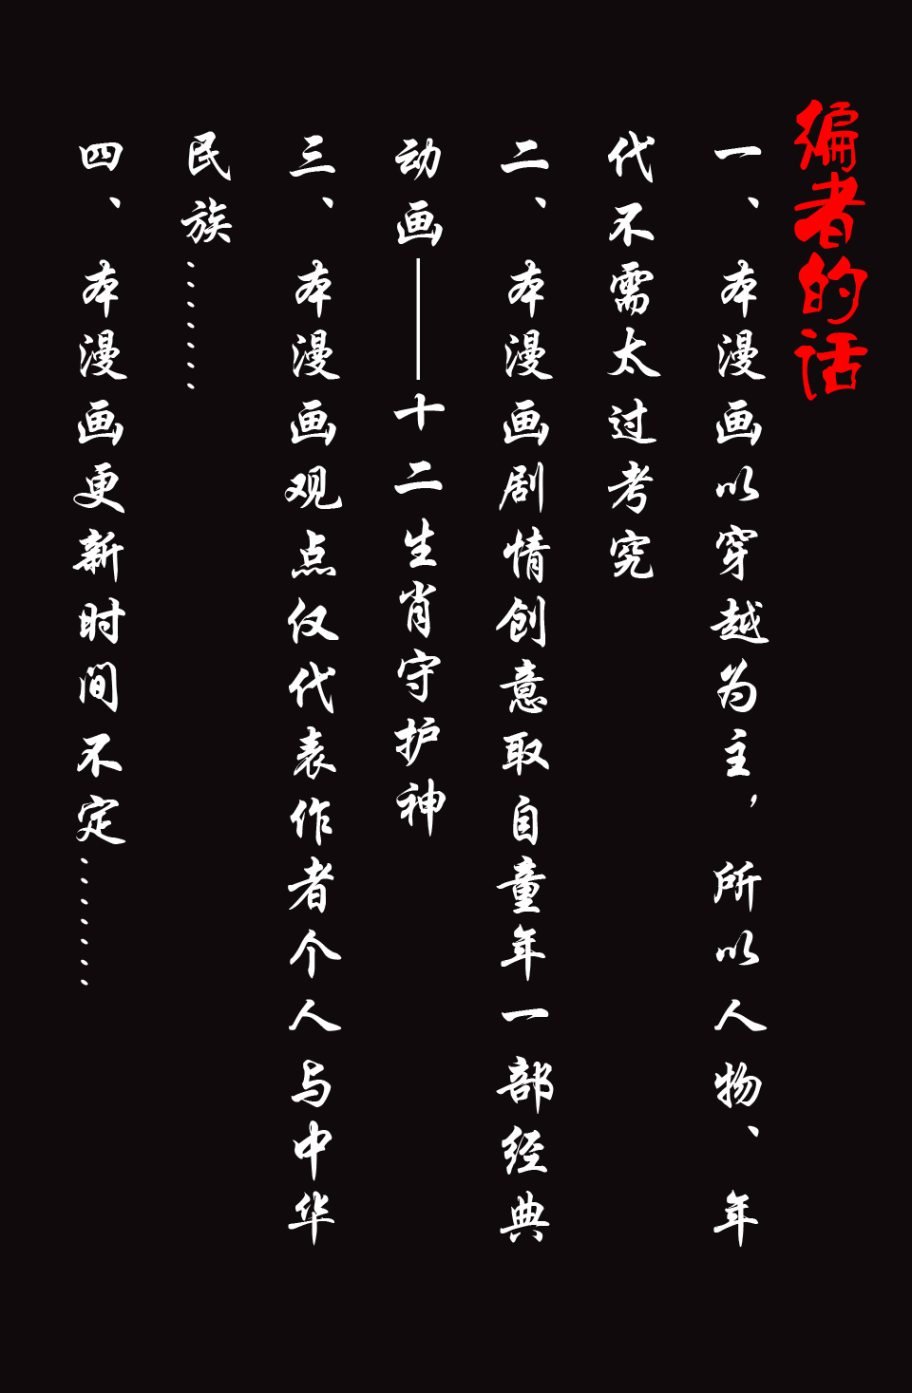 编者的话
一、本漫画以穿越为主，所以人物、年
代不需太过考究
二、本漫画剧情创意取自童年一部经典
动画——十二生肖守护神
三、本漫画观点仅代表作者个人与中华
民族.......
四、本漫画更新时间不定.......